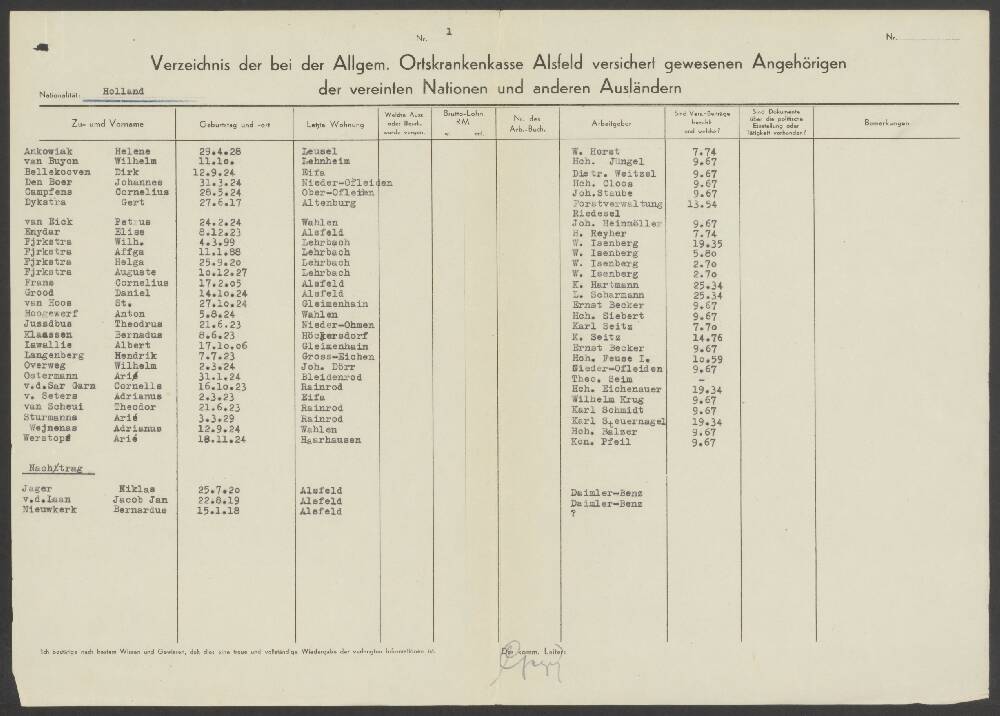 Nr. 1
Nr.
Verzeichnis der bei der Allgem. Ortskrankenkasse Alsfeld versichert gewesenen Angehörigen
der vereinten Nationen und anderen Ausländern
Nationalität: Holland
Zu- und Vorname Geburtstag und -ort Letzte Wohnung Welche Ausw. oder Besch. wurde vorgen. Brutto-Lohn RM w. mtl. Nr. des Arb.-Buch. Arbeitgeber Sind Vers.-Beiträge bezahlt und welche? Sind Dokumente über die politische Einstellung oder Tätigkeit vorhanden? Bemerkungen
Ankowiak Helene 29.4.28 Leusel W. Horst 7.74
van Buyon Wilhelm 11.1o. Lehnheim Hch. Jüngel 9.67
Bellekooven Dirk 12.9.24 Eifa Dietr. Weitzel 9.67
Den Boer Johannes 31.3.24 Nieder-Ofleiden Hch. Cloos 9.67
Campfens Cornelius 28.5.24 Ober-Ofleiden Joh.Staube 9.67
Dykstra Gert 27.6.17 Altenburg Forstverwaltung 13.54
Riedesel
van Eick Petrus 24.2.24 Wahlen Joh. Heinmöller 9.67
Enydar Elise 8.12.23 Alsfeld H. Reyher 7.74
Fjrkstra Wilh. 4.3.99 Lehrbach W. Isenberg 19.35
Fjrkstra Affga 11.1.88 Lehrbach W. Isenberg 5.8o
Fjrkstra Helga 25.9.2o Lehrbach W. Isenberg 2.7o
Fjrkstra Auguste 1o.12.27 Lehrbach W. Isenberg 2.7o
Frans Cornelius 17.2.o5 Alsfeld K. Hartmann 25.34
Grood Daniel 14.1o.24 Alsfeld L. Scharmann 25.34
van Hoos St. 27.1o.24 Gleimenhain Ernst Becker 9.67
Hoogewerf Anton 5.8.24 Wahlen Hch. Siebert 9.67
Jussdbus Theodrus 21.6.23 Nieder-Ohmen Karl Seitz 7.7o
Klaassen Bernadus 8.6.23 Höckersdorf K. Seitz 14.76
Lawallie Albert 17.1o.o6 Gleimenhain Ernst Becker 9.67
Langenberg Hendrik 7.7.23 Gross-Eichen Hch. Feuse I. 1o.59
Overweg Wilhelm 2.3.24 Joh. Dörr Nieder-Ofleiden 9.67
Ostermann Arie 31.1.24 Bleidenrod Theo. Seim -
v.d.Sar Garn Cornelis 16.1o.23 Rainrod Hch. Eichenauer 19.34
v. Seters Adrianus 2.3.23 Eifa Wilhelm Krug 9.67
van Scheui Theodor 21.6.23 Rainrod Karl Schmidt 9.67
Sturmanns Arie 3.3.29 Rainrod Karl Steuernagel 19.34
Wejnenas Adrianus 12.9.24 Wahlen Hch. Balzer 9.67
Werstops Arie 18.11.24 Haarhausen Kon. Pfeil 9.67
Nach/trag
Jager Niklas 25.7.2o Alsfeld Daimler-Benz
v.d.Laan Jacob Jan 22.8.19 Alsfeld Daimler-Benz
Nieuwkerk Bernardus 15.1.18 Alsfeld ?
Ich bestätige nach bestem Wissen und Gewissen, daß dies eine treue und vollständige Wiedergabe der verlangten Informationen ist. Der komm. Leiter: